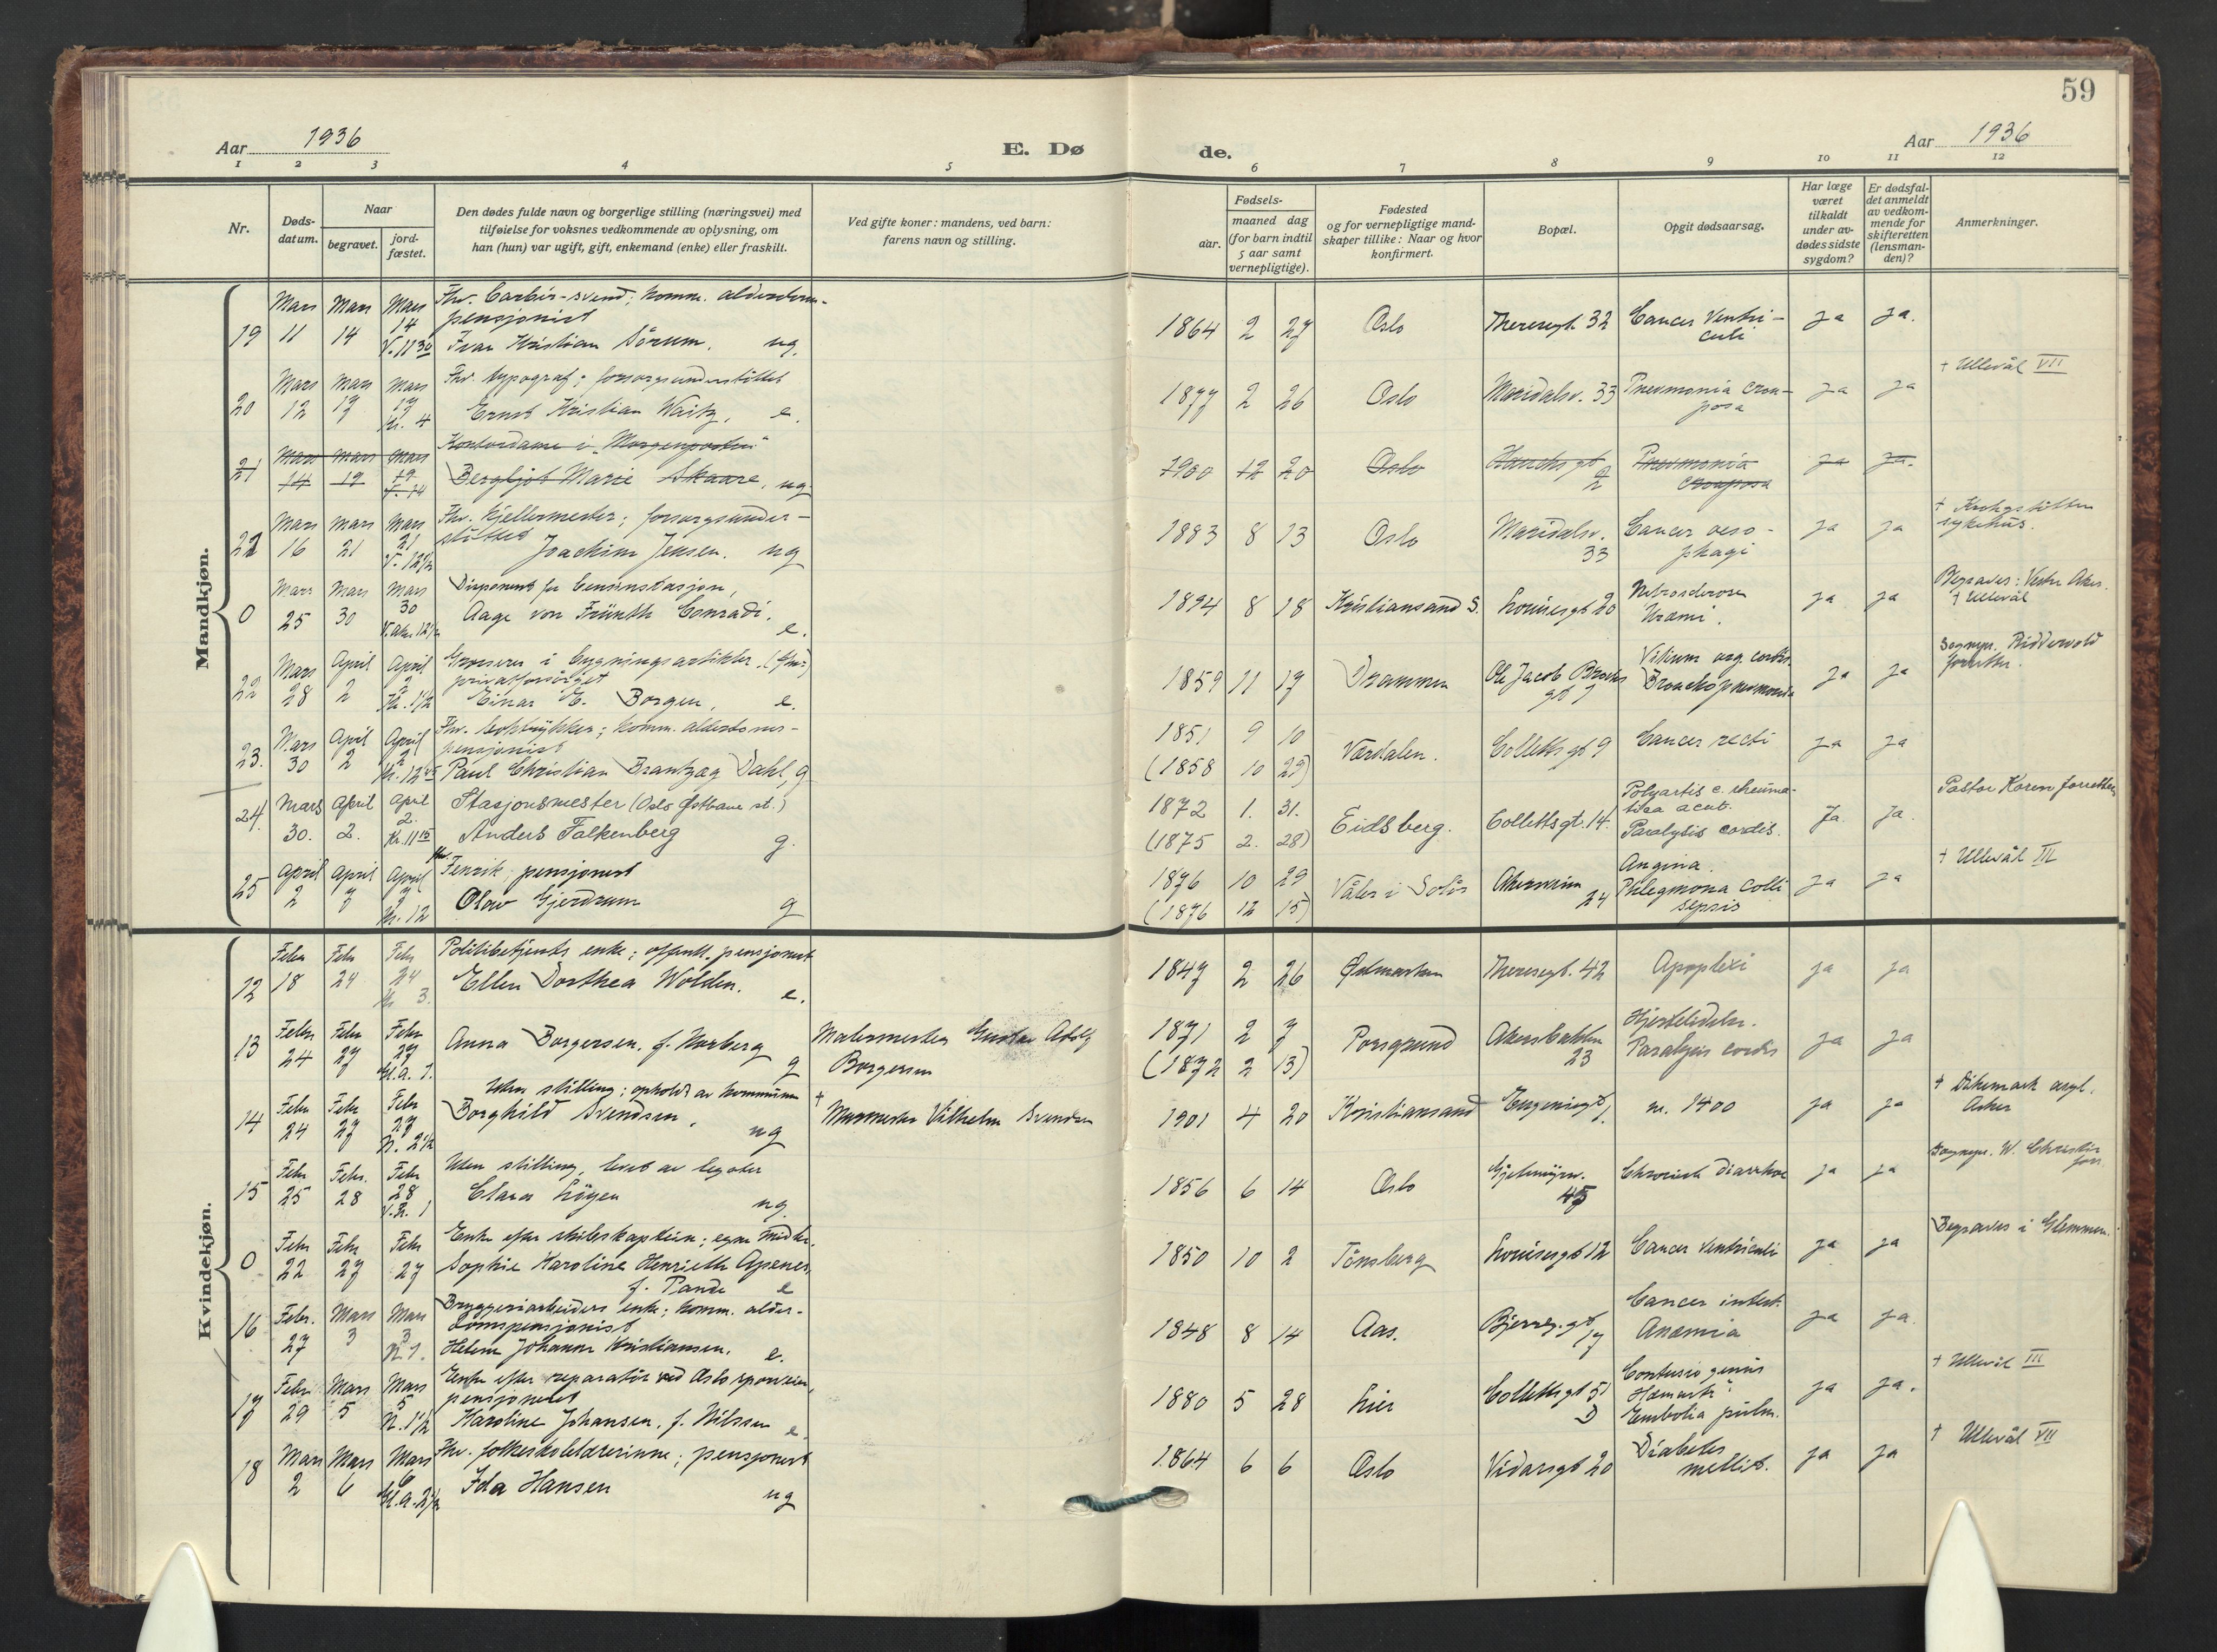 59
Aar 1936
E. Dø
de.
Aar 1936
1 2 3 4 5 6 7 8 9 10 11 12
Nr.
Døds-
datum.
Naar
begravet.
jord-
fæstet.
Den dødes fulde navn og borgerlige stilling (næringsvei) med
tilføielse for voksnes vedkommende av oplysning, om
han (hun) var ugift, gift, enkemand (enke) eller fraskilt.
Ved gifte koner: mandens, ved barn:
farens navn og stilling.
Fødsels-
aar.
maaned dag
(for barn indtil
5 aar samt
vernepligtige).
Fødested
og for vernepligtige mand-
skaper tillike: Naar og hvor
konfirmert.
Bopæl.
Opgit dødsaarsag.
Har læge
været
tilkaldt
under av-
dødes sidste
sygdom?
Er dødsfal-
det anmeldt
av vedkom-
mende for
skifteretten
(lensman-
den)?
Anmerkninger.
Mandkjøn.
Mars Mars Mars Fhv. barber-svend; komm. alderdoms-
14 pensjonist
19 11 14 V. 11 30 Ivar Kristian Sørum. ug. 1864 2 27 Oslo Theresegt. 32 Cancer Ventri-
culi ja ja.
Mars Mars Mars Fhv. typograf; forsorgsunderstøttet
20 12 17 17 Ernst Kristian Waitz, e. 1877 2 26 Oslo Maridalsv. 33 Pneumonia crou-
Kr. 4 posa ja ja † Ullevål VII
Mars Mars Mars Kontordame i "Morgenposten"
21 14 19 19 Bergljot Marie Skaare, ug. 1900 12 20 Oslo Pneumonia
crouposa ja ja.
Mars Mars Mars Fhv. kjellermester; forsorgsunder-
støttet
22 16 21 21 Joachim Jensen. ug 1883 8 13 Oslo Maridalsv.
33 Cancer oeso-
V. 12½ phagi ja ja † Krohgstøtten
sykehus.
Mars Mars Mars Disponent for bensinstasjon,
0 25 30 30 Aage von Conradi. e. 1894 8 18 Kristiansand S. Louisesgt 20
V. Aker 12½ Uræmi. ja ja Begraves: Vestre Aker.
† Ullevål
Mars April April Grosserer i bygningsartikler. (fhv.)
privatforsørget
22 28 2 2 Einar E. Borgen, e. 1859 11 17 Drammen Ole Jacob Brochs
gt 7 Vitium org. cordis.
Kr. 1½ Bronchopneumonia ja ja Sognepr. Ridderwold
forretter.
Mars April April Fhv. boktrykker; komm. alderdoms-
pensjonist
23. 30 2 2 Paul Christian Brantzæg Dahl, g 1851 9 10
(1858 10 29) Værdalen. Colletts gt 9 Cancer recti ja ja
Mars April April Stasjonsmester (Oslo Østbane st.)
24. 30. 2. 2. Anders Falkenberg g. 1872 1. 31.
(1875 2. 28) Eidsberg. Collettsgt. 14. Polyartis c. rheuma-
tica acut.
Kr. 11 15 Paralysis cordis. Ja. Ja. Pastor Koren forretter
April April April fhv. Fenrik, pensjonert
25 2 7 7 Olav Gjerdrum g 1876 10 29
(1876 12 15) Våler i Solør Akersveien
24 Angina.
Kr. 12 Phlegmona colli
sepsis ja ja † Ullevål III
Kvindekjøn.
Febr Febr Febr Politibetjents enke; offentl. pensjonist
12 18 24 24 Ellen Dorthea Wolden. e. 1847 2 26 Ødemarken Theresegt. 42 Apoplexi ja ja
Kr 3.
Febr Febr Febr
13 24 27 27 Anna Borgersen, f. Norberg g Malermester Gustav Adolf
Borgersen 1871 2 7
(1872 2 13) Porsgrund Akersbakken
23 Hjertelidelse.
Paralysis cordis ja ja
Febr Febr Febr Uten stilling; opholdt av kommunen
14 24 27 27 Borghild Svendsen, ug † Murmester Vilhelm Svendsen 1901 4 20 Kristiansand Eugeniesgt
1. nr. 1400 ja ja † Dikemark asyl.
N. 2½ Asker
Febr Febr. Febr Uten stilling, levet av legater
15 25 28 28 Clara Løgen ug. 1856 6 14 Oslo Gjetemyrsv.
45 Chronisk diarrhoe ja ja Sognepr. W. Christie
Febr Febr Febr Enke efter skibskaptein; egne midler.
0 22 27 27 Sophie Karoline Henriette Apenes,
f. Pande e 1850 10 2 Tønsberg Louisesgt 12 Cancer ventriculi ja ja Begraves i Glemmen.
Febr. Mars Mars Bryggeriarbeiders enke; komm. alder-
domspensjonist
16 27 3 3 Helene Johanne Kristiansen. e. 1848 8 14 Aas. Bjerreg. gt
17 Cancer intest.
N 1. Anæmia ja ja.
Febr Mars Mars Enke efter reparatør ved Oslo sporveier,
pensjonert
17 29 5 5 Karoline Johansen, f. Nilssen e. 1880 5 28 Lier Colletts gt 51
D Contusio genus
N. 1½ Embolia pulm. ja ja. † Ullevål III
Mars Mars Mars Fhv. folkeskolelærerinne; pensjonert
18 2 6 6 Ida Hansen ug 1864 6 6 Oslo Vidarsgt 20 Diabetes
mellit. ja ja † Ullevål VII